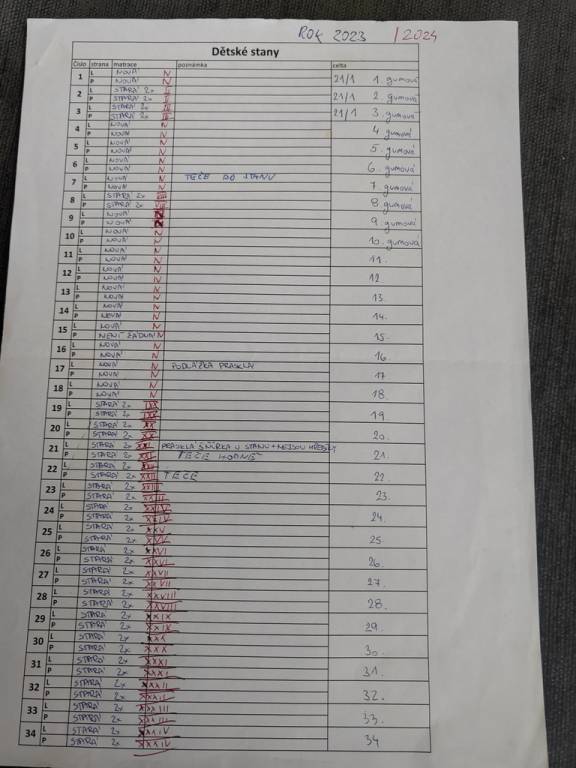 ROK 2023 / 2024
Dětské stany
Číslo strana matrace poznámka celta
1 L NOVÁ N 21/1 1. gumová
P NOVÁ N
2 L STARÁ 2x II 21/1 2. gumová
P STARÁ 2x II
3 L STARÁ 2x III 21/1 3. gumová
P STARÁ 2x III
4 L NOVÁ N 4 gumová
P NOVÁ N
5 L NOVÁ N 5. gumová
P NOVÁ N
6 L NOVÁ N 6. gumová
P NOVÁ N
7 L NOVÁ N TEČE DO STANU 7. gumová
P NOVÁ N
8 L STARÁ 2x VIII 8. gumová
P STARÁ 2x VIII
9 L NOVÁ N 9. gumová
P NOVÁ N
10 L NOVÁ N 10. gumová
P NOVÁ N
11 L NOVÁ N 11.
P NOVÁ N
12 L NOVÁ N 12
P NOVÁ N
13 L NOVÁ N 13.
P NOVÁ N
14 L NOVÁ N 14.
P NOVÁ N
15 L NOVÁ N 15.
P NENÍ ŽÁDNÁ N
16 L NOVÁ N 16
P NOVÁ N
17 L NOVÁ N PODLÁŽKA PRASKLÁ 17
P NOVÁ N
18 L NOVÁ N 18.
P NOVÁ N
19 L STARÁ 2x IXX 19
P STARÁ 2x IXX
20 L STARÁ 2x XX 20.
P STARÁ 2x XX
21 L STARÁ 2x XXI PRASKLÁ ŠŇŮRKA U STANU + NEJSOU HŘEBÍKY 21.
P STARÁ 2x XXI TEČE HODNĚ
22 L STARÁ 2x XXII 22.
P STARÁ 2x XXII TEČE
23 L STARÁ 2x XXIII 23.
P STARÁ 2x XXIII
24 L STARÁ 2x XXIV 24.
P STARÁ 2x XXIV
25 L STARÁ 2x XXV 25
P STARÁ 2x XXV
26 L STARÁ 2x XXVI 26.
P STARÁ 2x XXVI
27 L STARÁ 2x XXVII 27.
P STARÁ 2x XXVII
28 L STARÁ 2x XXVIII 28.
P STARÁ 2x XXVIII
29 L STARÁ 2x XXIX 29.
P STARÁ 2x XXIX
30 L STARÁ 2x XXX 30.
P STARÁ 2x XXX
31 L STARÁ 2x XXXI 31.
P STARÁ 2x XXXI
32 L STARÁ 2x XXXII 32.
P STARÁ 2x XXXII
33 L STARÁ 2x XXXIII 33.
P STARÁ 2x XXXIII
34 L STARÁ 2x XXXIV 34
P STARÁ 2x XXXIV